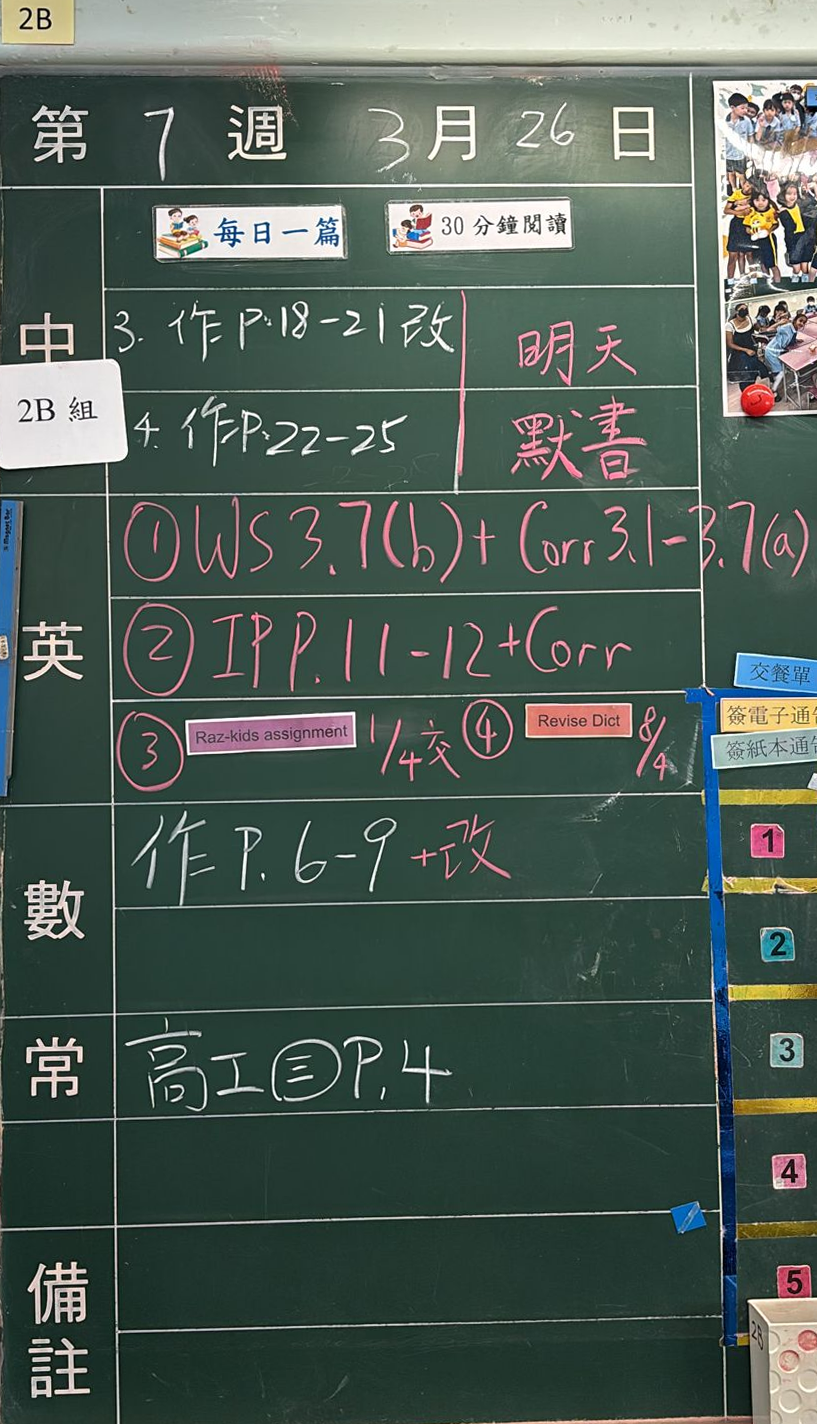 2B
第 7 週 3 月 26 日
每日一篇 30分鐘閱讀
中
3. 作 P.18-21 改
明天
2B 組
4. 作P.22-25
默書
英
① WS 3.7(b) + Corr 3.1-3.7(a)
② IP P.11-12 + Corr
③ Raz-kids assignment 1/4交 ④ Revise Dict 8/4
數
作 P. 6-9 +改
常
高工㊂P.4
備註
交餐單
簽電子通告
簽紙本通告
1
2
3
4
5
2B